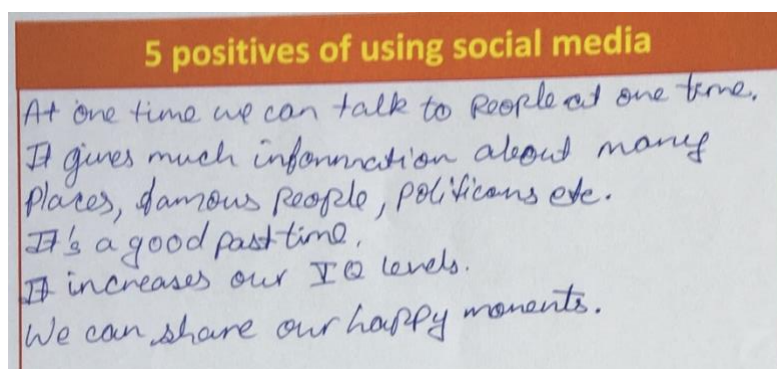 5 positives of using social media
At one time we can talk to people at one time.
It gives much information about many
places, famous people, politicans etc.
It's a good past time.
It increases our IQ levels.
We can share our happy moments.